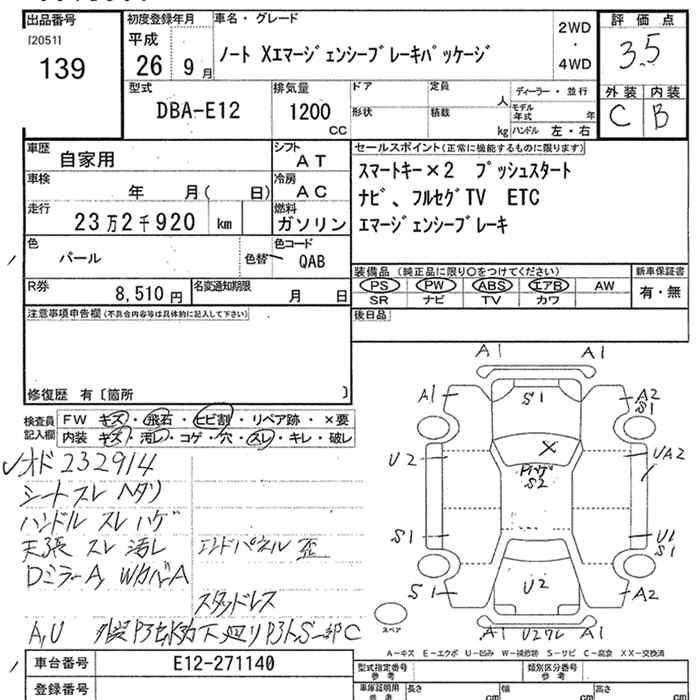 出品番号 初度登録年月 車名・グレード 評価点
[2051] 平成 2WD
139 26 年 9 月 ノート Xエマージェンシーブレーキパッケージ ・ 3.5
4WD
型式 排気量 ドア 定員 人 ディーラー・並行 外装 内装
DBA-E12 1200 cc 形状 積載 kg モデル年式 年 C B
ハンドル 左・右
車歴 自家用 シフト AT セールスポイント(正常に機能するものに限ります)
車検 年 月( 日) 冷房 AC スマートキー×2 プッシュスタート
走行 23万2千920 km 燃料 ガソリン ナビ、フルセグTV ETC
エマージェンシーブレーキ
色 パール 色替 色コード QAB
装備品 (純正品に限り○をつけてください) 新車保証書
R券 8,510 円 名変通知期限 月 日 PS PW ABS エアB AW 有・無
SR ナビ TV カワ
注意事項申告欄(不具合内容等は具体的に記入して下さい) 後日品
修復歴 有〔箇所 〕
検査員記入欄 FW キズ・飛石・ヒビ割・リペア跡・×要
内装 キズ・汚レ・コゲ・穴・スレ・キレ・破レ
オド 232914
シートスレ ヘタリ
ハンドル スレ ハゲ
天張 スレ 汚レ エンドパネル 歪
DミラーA, WカバーA
スタッドレス
A,U
A1 A1
A1 S1 A2 S1
X
U2 S2 UA2
S1 U1 S1
S1 U2 A2
スペア A1 U2ワレ A1
A-キズ E-エクボ U-凹み W-補修跡 S-サビ C-腐食 XX-交換済
車台番号 E12-271140
型式指定番号 参考 類別区分番号 参考
登録番号
車庫証明用 参考 長さ cm 幅 cm 高さ cm